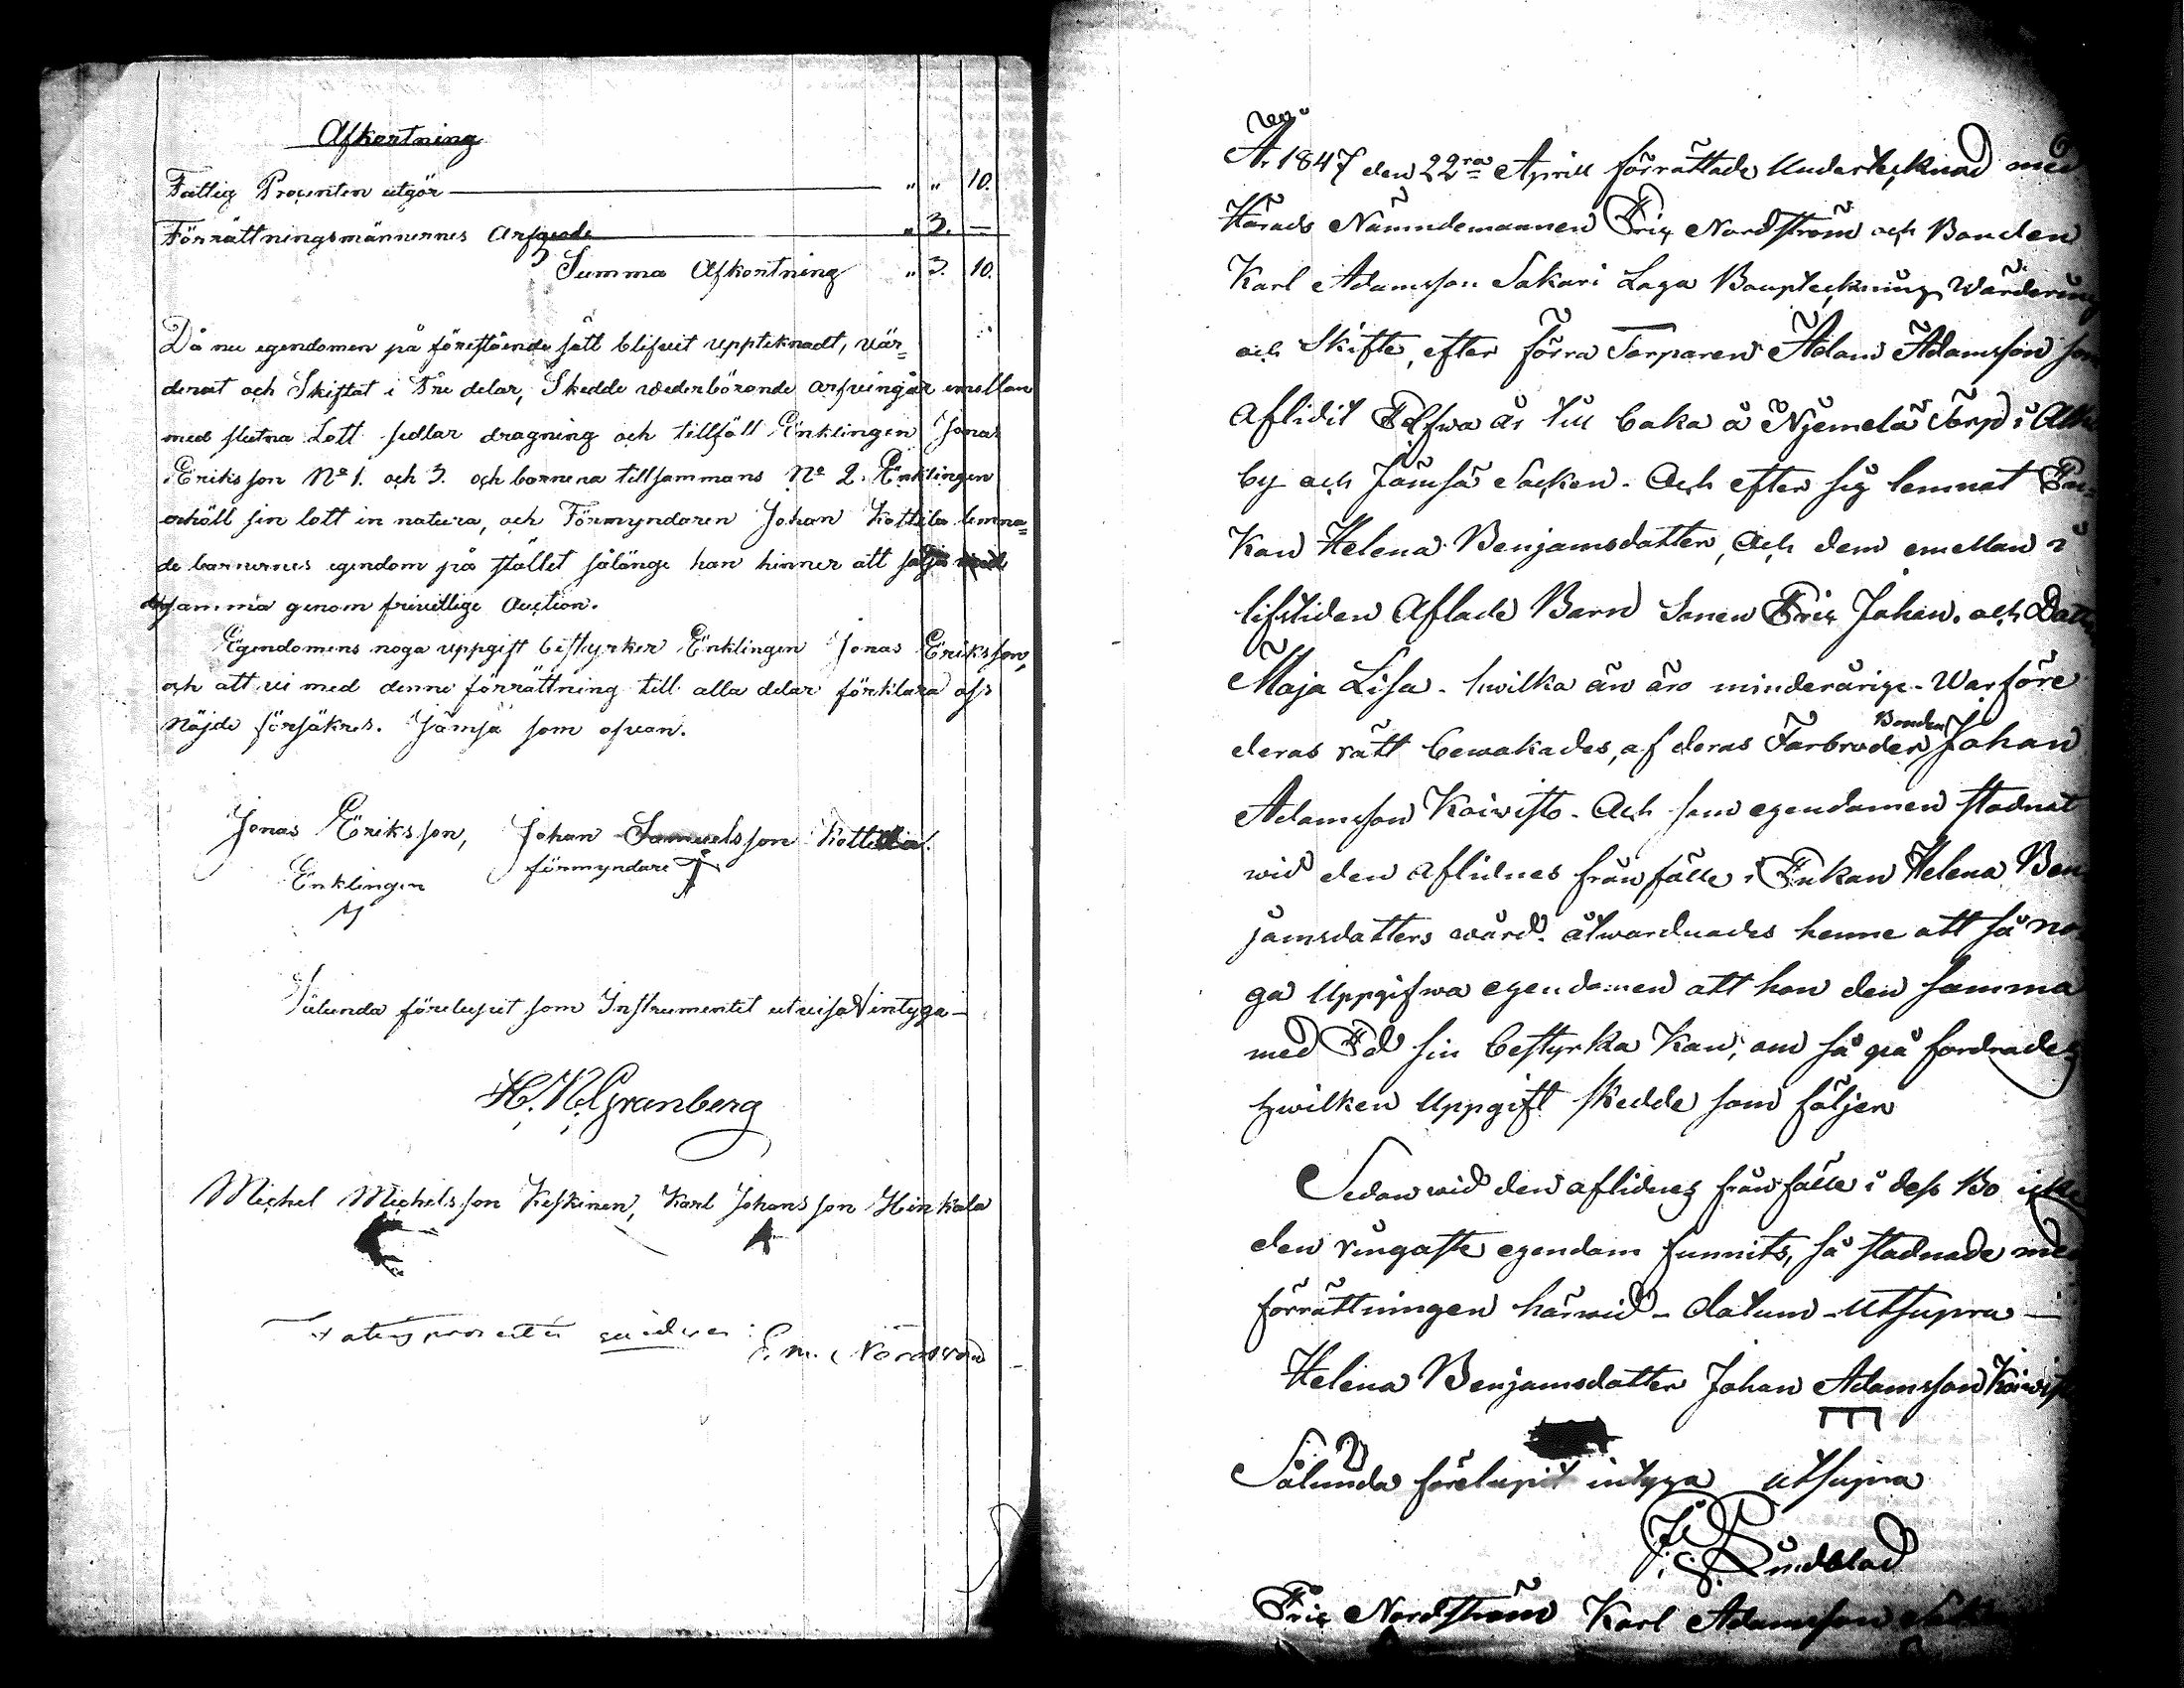 Afkortning
Fattig Procenten utgör " " 10.
Förrättningsmännernes Arfvode " 3. —
Summa Afkortning " 3. 10.
Då nu egendomen på förestående sätt blifvit upptcknadt, vär=
derat och Skiftat i Tre delar, Skedde vederbörande arfvingar emellan
med slutna Lott sedlar dragning och tillföll Enklingen Jonas
Eriksson No 1. och 3. och barnena tillsammans No 2. Enklingen
erhöll sin lott in natura, och Förmyndaren Johan Kottila lemna=
de barnernes egendom på stället sålänge han hinner att sälja
samma genom frivillige Auction.
Egendomens noga uppgift bestyrker Enklingen Jonas Eriksson,
och att vi med denne förrättning till alla delar förklara oss
nöjde försäkres. Jämsä som ofvan.
Jonas Eriksson, Johan Samuelsson Kottila.
Enklingen förmyndare
Sålunda förelupit som Instrumentet utvisa intyga —
H. N. Granberg
Michel Michelsson Keskinen, Karl Johansson Hinkala
År 1847 den 22ra Aprill förrättade Undertecknad med
Härads Nämndemannen Eric Nordström och Bonden
Karl Adamsson Sakari Laga Boupteckning, Wärdering
och Skifte, efter förra Torparen Adam Adamsson som
Aflidit Elfwa år till baka å Njemelä Torp i
by och Jämsä Socken. Och efter sig lemnat En=
kan Helena Benjamsdatter, Och dem emellan i
lifstiden Aflade Barn Sonen Eric Johan. och Dattren
Maja Lisa. hwilka än äro minderårige. Warföre
deras rätt bewakades, af deras Farbroder Bonden Johan
Adamsson Koiwisto. Och som egendomen stadnat
wid den aflidnes frånfälle i Enkan Helena Ben
jamsdatters wård. åtwarnades henne att så no
ga Uppgifwa egendomen att hon den samma
med Ed sin bestyrka kan, om så på fordrades
hwilken Uppgift skedde som följer
Sedan wid den aflidnes frånfälle i dess Bo icke
den ringaste egendom funnits, så stadnade med
förrättningen härwid – datum – Utsupra —
Helena Benjamsdatter Johan Adamsson Koiwisto
Sålunda förelupit intyga utsupra
Lundblad
Eric Nordström Karl Adamsson